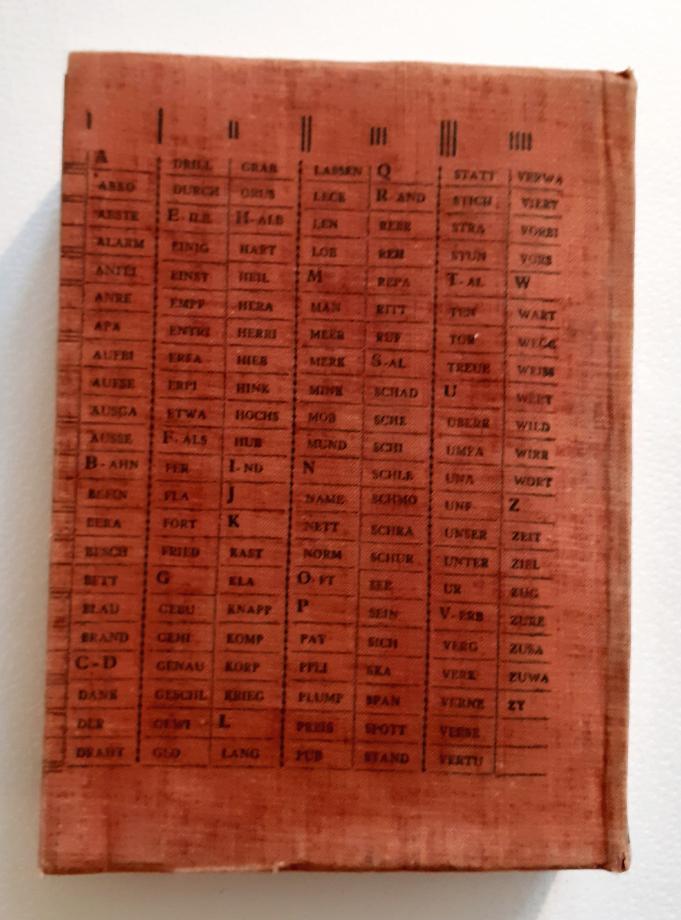 I
A
ALARM
ANTEI
ANRE
APA
AUFBI
AUFSE
AUSGA
AUSSE
B-AHN
BEFIN
BERA
BESCH
BETT
BLAU
BRAND
C-D
DANK
DER
DRAHT
I
DRILL
DURCH
EINIG
EINST
EMPF
ENTRI
ERFA
ERPI
ETWA
F-ALS
FER
FLA
FORT
FRIED
G
GEBU
GEHI
GENAU
GESCHL
GEWI
GLO
II
GRAB
GRUS
H-ALB
HART
HEIL
HERA
HERRI
HIEB
HINK
HOCHS
HUB
I-ND
J
K
KAST
KLA
KNAPP
KOMP
KORP
KRIEG
L
LANG
II
LASSEN
LECK
LEN
LOB
M
MAN
MEER
MERK
MINK
MOB
MUND
N
NAME
NETT
NORM
O-FT
P
PAT
PFLI
PLUMP
PREIS
PUB
III
Q
R-AND
REBE
REH
REPA
RITT
RUF
S-AL
SCHAD
SCHE
SCHI
SCHLE
SCHMO
SCHRA
SCHUR
SEE
SEIN
SICH
SKA
SPAN
SPOTT
STAND
III
STATT
STICH
STRA
STUN
T-AL
TEN
TOR
TREUE
U
ÜBERR
UMFA
UNA
UNF
UNSER
UNTER
UR
V-ERB
VERG
VERK
VERNE
VERSE
VERTU
IIII
VERWA
VIERT
VORBI
VORS
W
WART
WEGG
WEISS
WERT
WILD
WIRR
WORT
Z
ZEIT
ZIEL
ZUG
ZURE
ZUSA
ZUWA
ZY